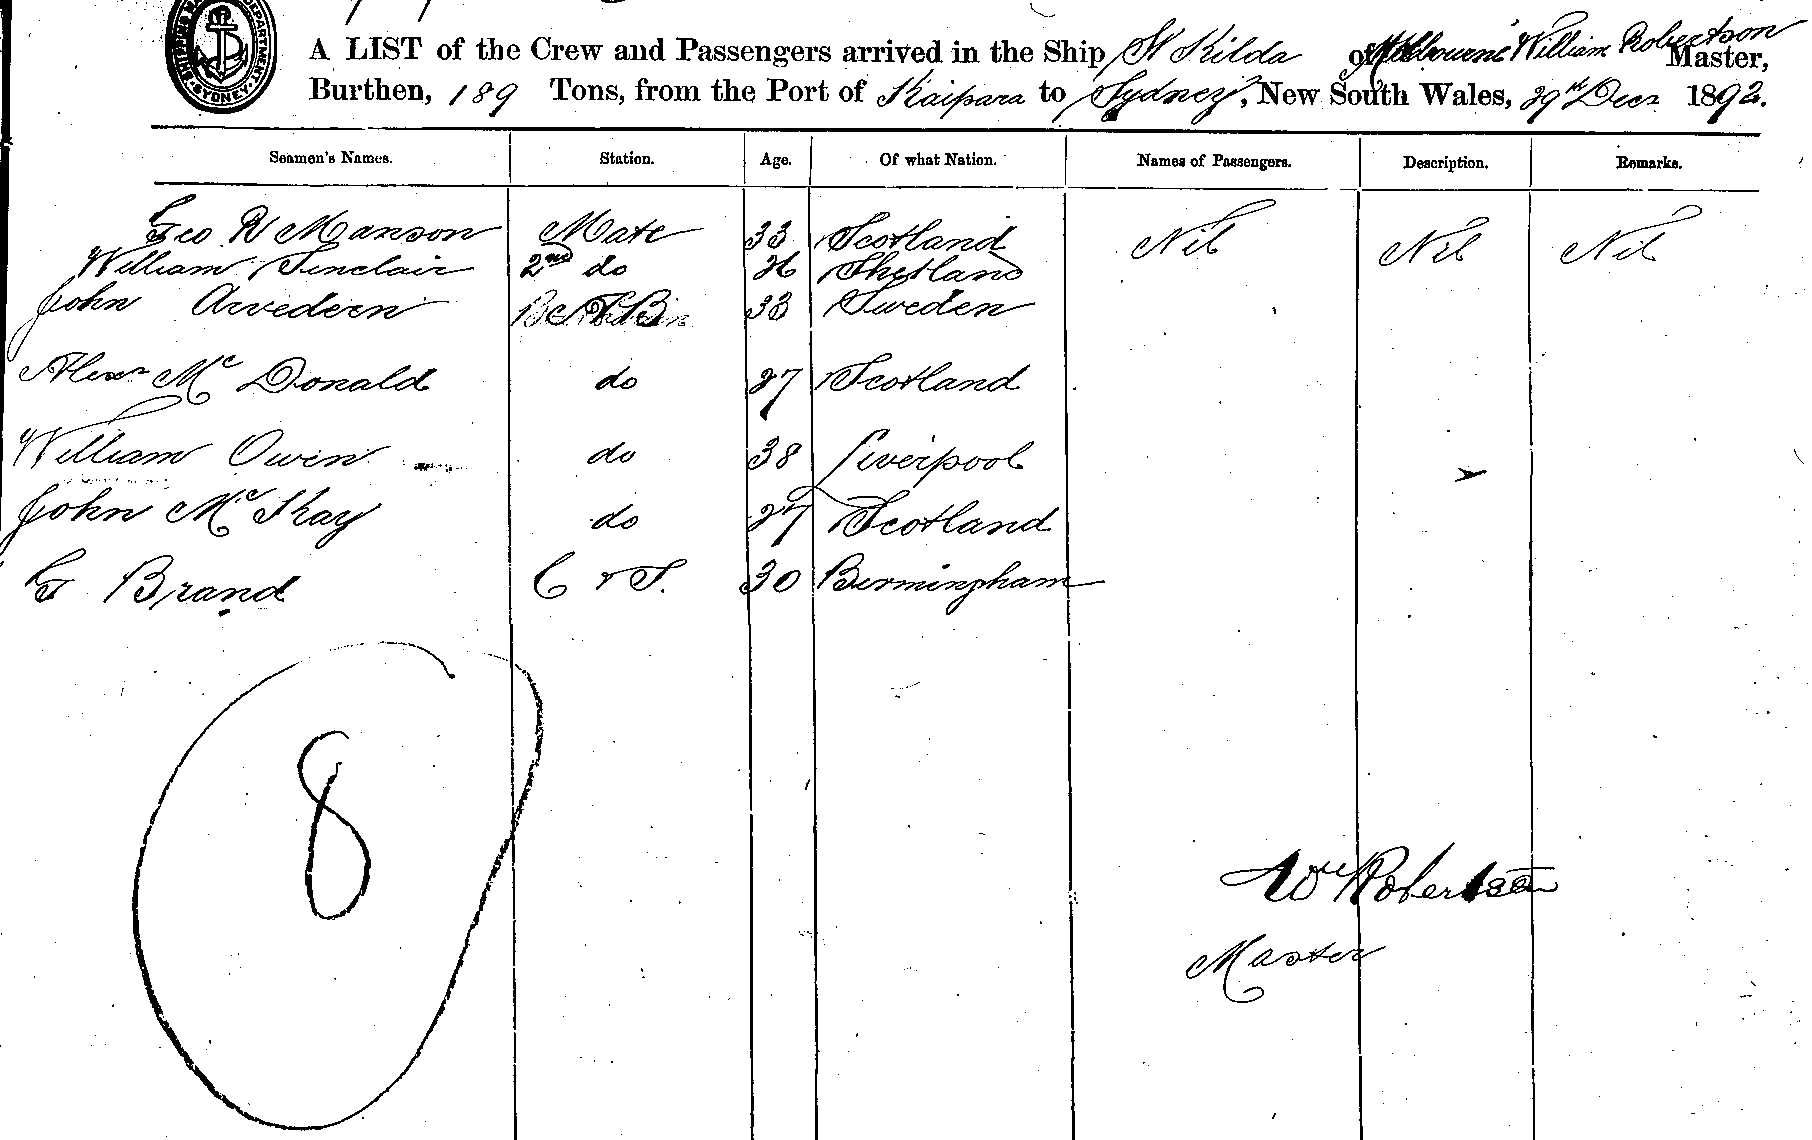 DEPARTMENT SYDNEY
A LIST of the Crew and Passengers arrived in the Ship St Kilda of Melbourne William Robertson Master,
Burthen, 189 Tons, from the Port of Kaipara to Sydney, New South Wales, 29th Decr 1892.
Seamen's Names. Station. Age. Of what Nation. Names of Passengers. Description. Remarks.
Geo W Manson Mate 33 Scotland Nil Nil Nil
William Sinclair 2nd do 26 Shetland
John Arvedern 33 Sweden
Alexr Mc Donald do 27 Scotland
William Owen do 38 Liverpool
John Mc Kay do 27 Scotland
G Brand C & S. 30 Bermingham
8
Wm Robertson
Master